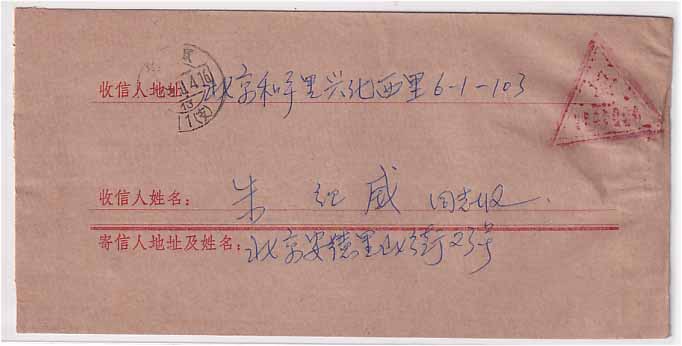 收信人地址: 北京和平里兴化西里6-1-103
收信人姓名: 朱 威 同志收
寄信人地址及姓名: 北京安德里北街23号